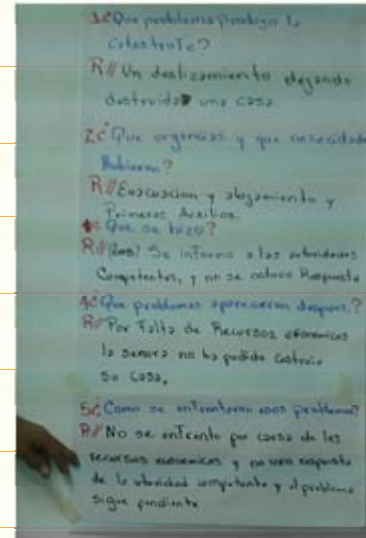 1.¿Que problema Produjo la
Catastrofe?
R// Un deslizamiento dejando
destruida una casa.
2.¿Que urgencias y que necesidades
Hubieron?
R// Evacuacion y alojamiento y
Primeros Auxilios.
¿Que se hizo?
R// Se informo a las autoridades
Competentes, y no se obtuvo Respuesta
4¿Que problemas aparecieron despues?
R// Por Falta de Recursos economicos
la senora no ha podido
su casa.
5¿Como se enfrentaron esos problemas?
R// No se enfrento por causa de los
recursos economicos y no
de la competente y el problema
sigue pendiente